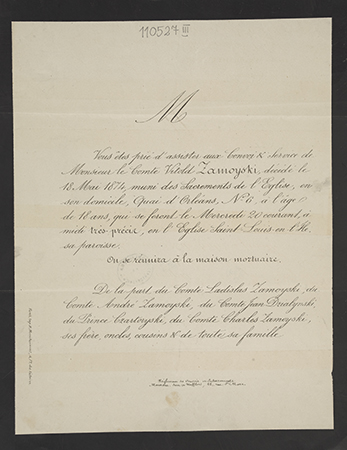 110527 III
M
Vous êtes prié d'assister aux Convoi & Service de
Monsieur le Comte Vitold Zamoyski, décédé le
18 Mai 1874, muni des Sacrements de l'Eglise, en
son domicile, Quai d'Orléans, No 6, à l'âge
de 18 ans, qui se feront le Mercredi 20 courant, à
midi très précis, en l'Eglise Saint Louis en l'Ile,
sa paroisse.
On se réunira à la maison mortuaire.
De la part du Comte Ladislas Zamoyski, du
Comte André Zamoyski, du Comte Jean Działyński,
du Prince Czartoryski, du Comte Charles Zamoyski,
ses frère, oncles, cousins & de toute sa famille.